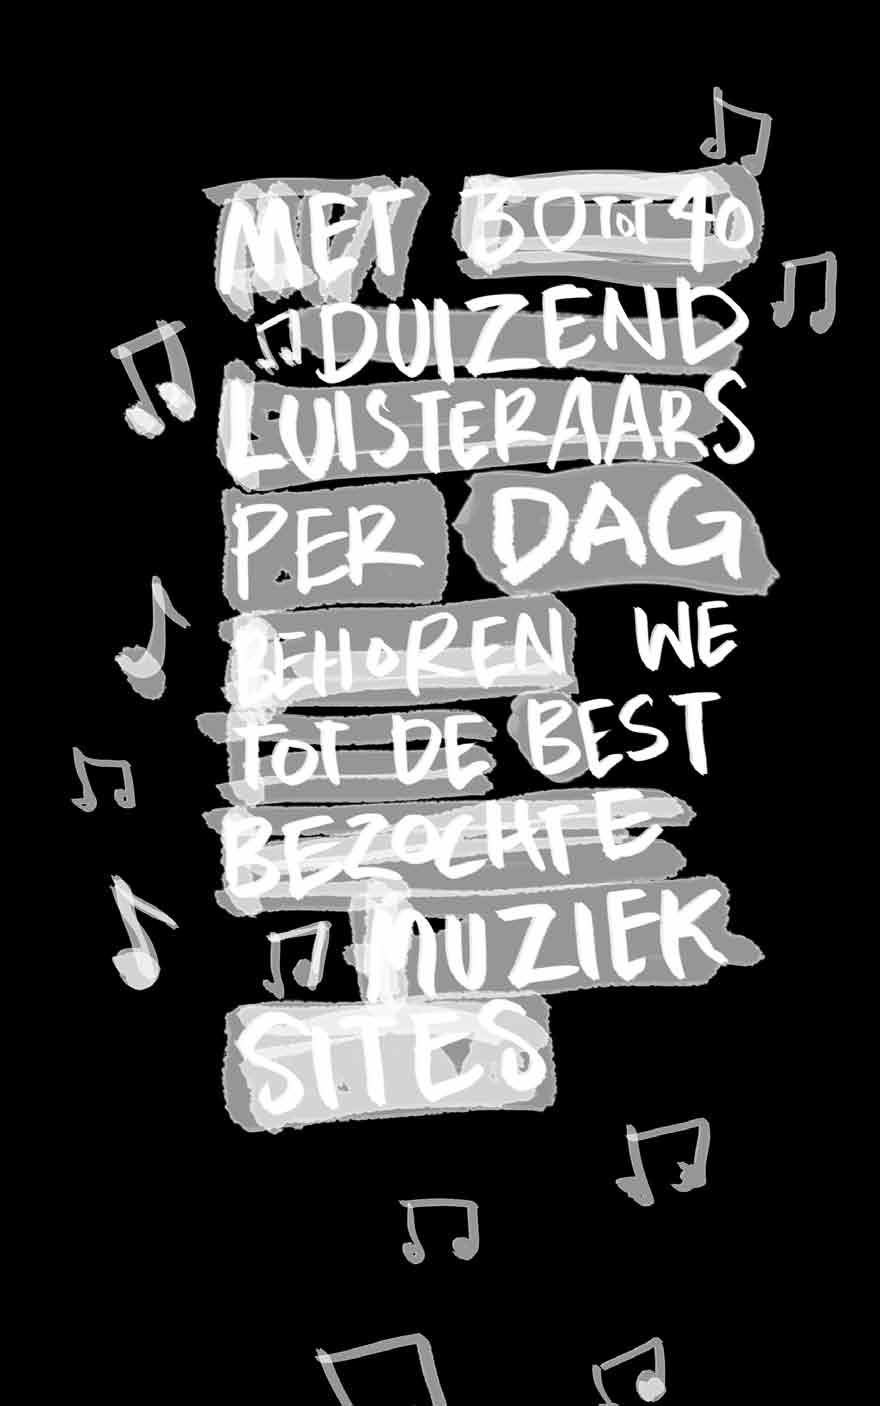 MET 30 TOT 40
DUIZEND
LUISTERAARS
PER DAG
BEHOREN WE
TOT DE BEST
BEZOCHTE
MUZIEK
SITES